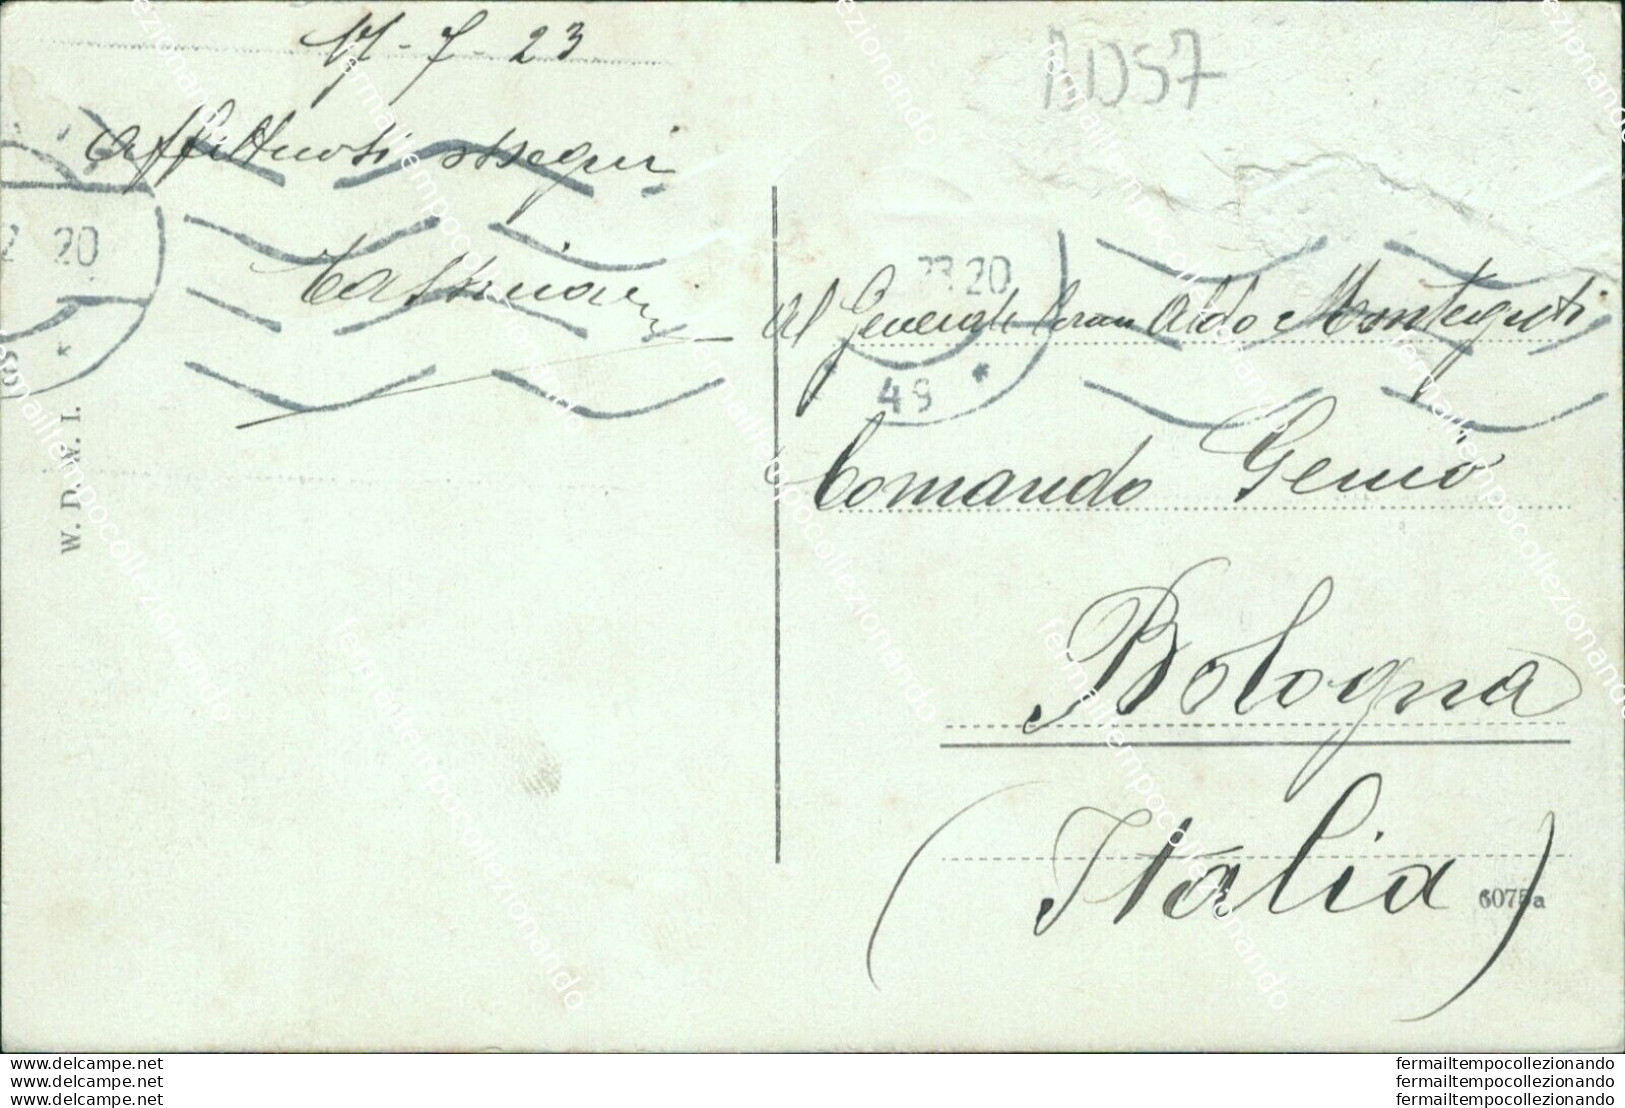 17-7-23
Affettuosi ossequi
AD57
20
23.20
49
Al Generale Aldo Monteguti
Comando Genio
Bologna
(Italia)
W. D. W. I.
6075a
www.delcampe.net
www.delcampe.net
www.delcampe.net
fermailtempocollezionando
fermailtempocollezionando
fermailtempocollezionando